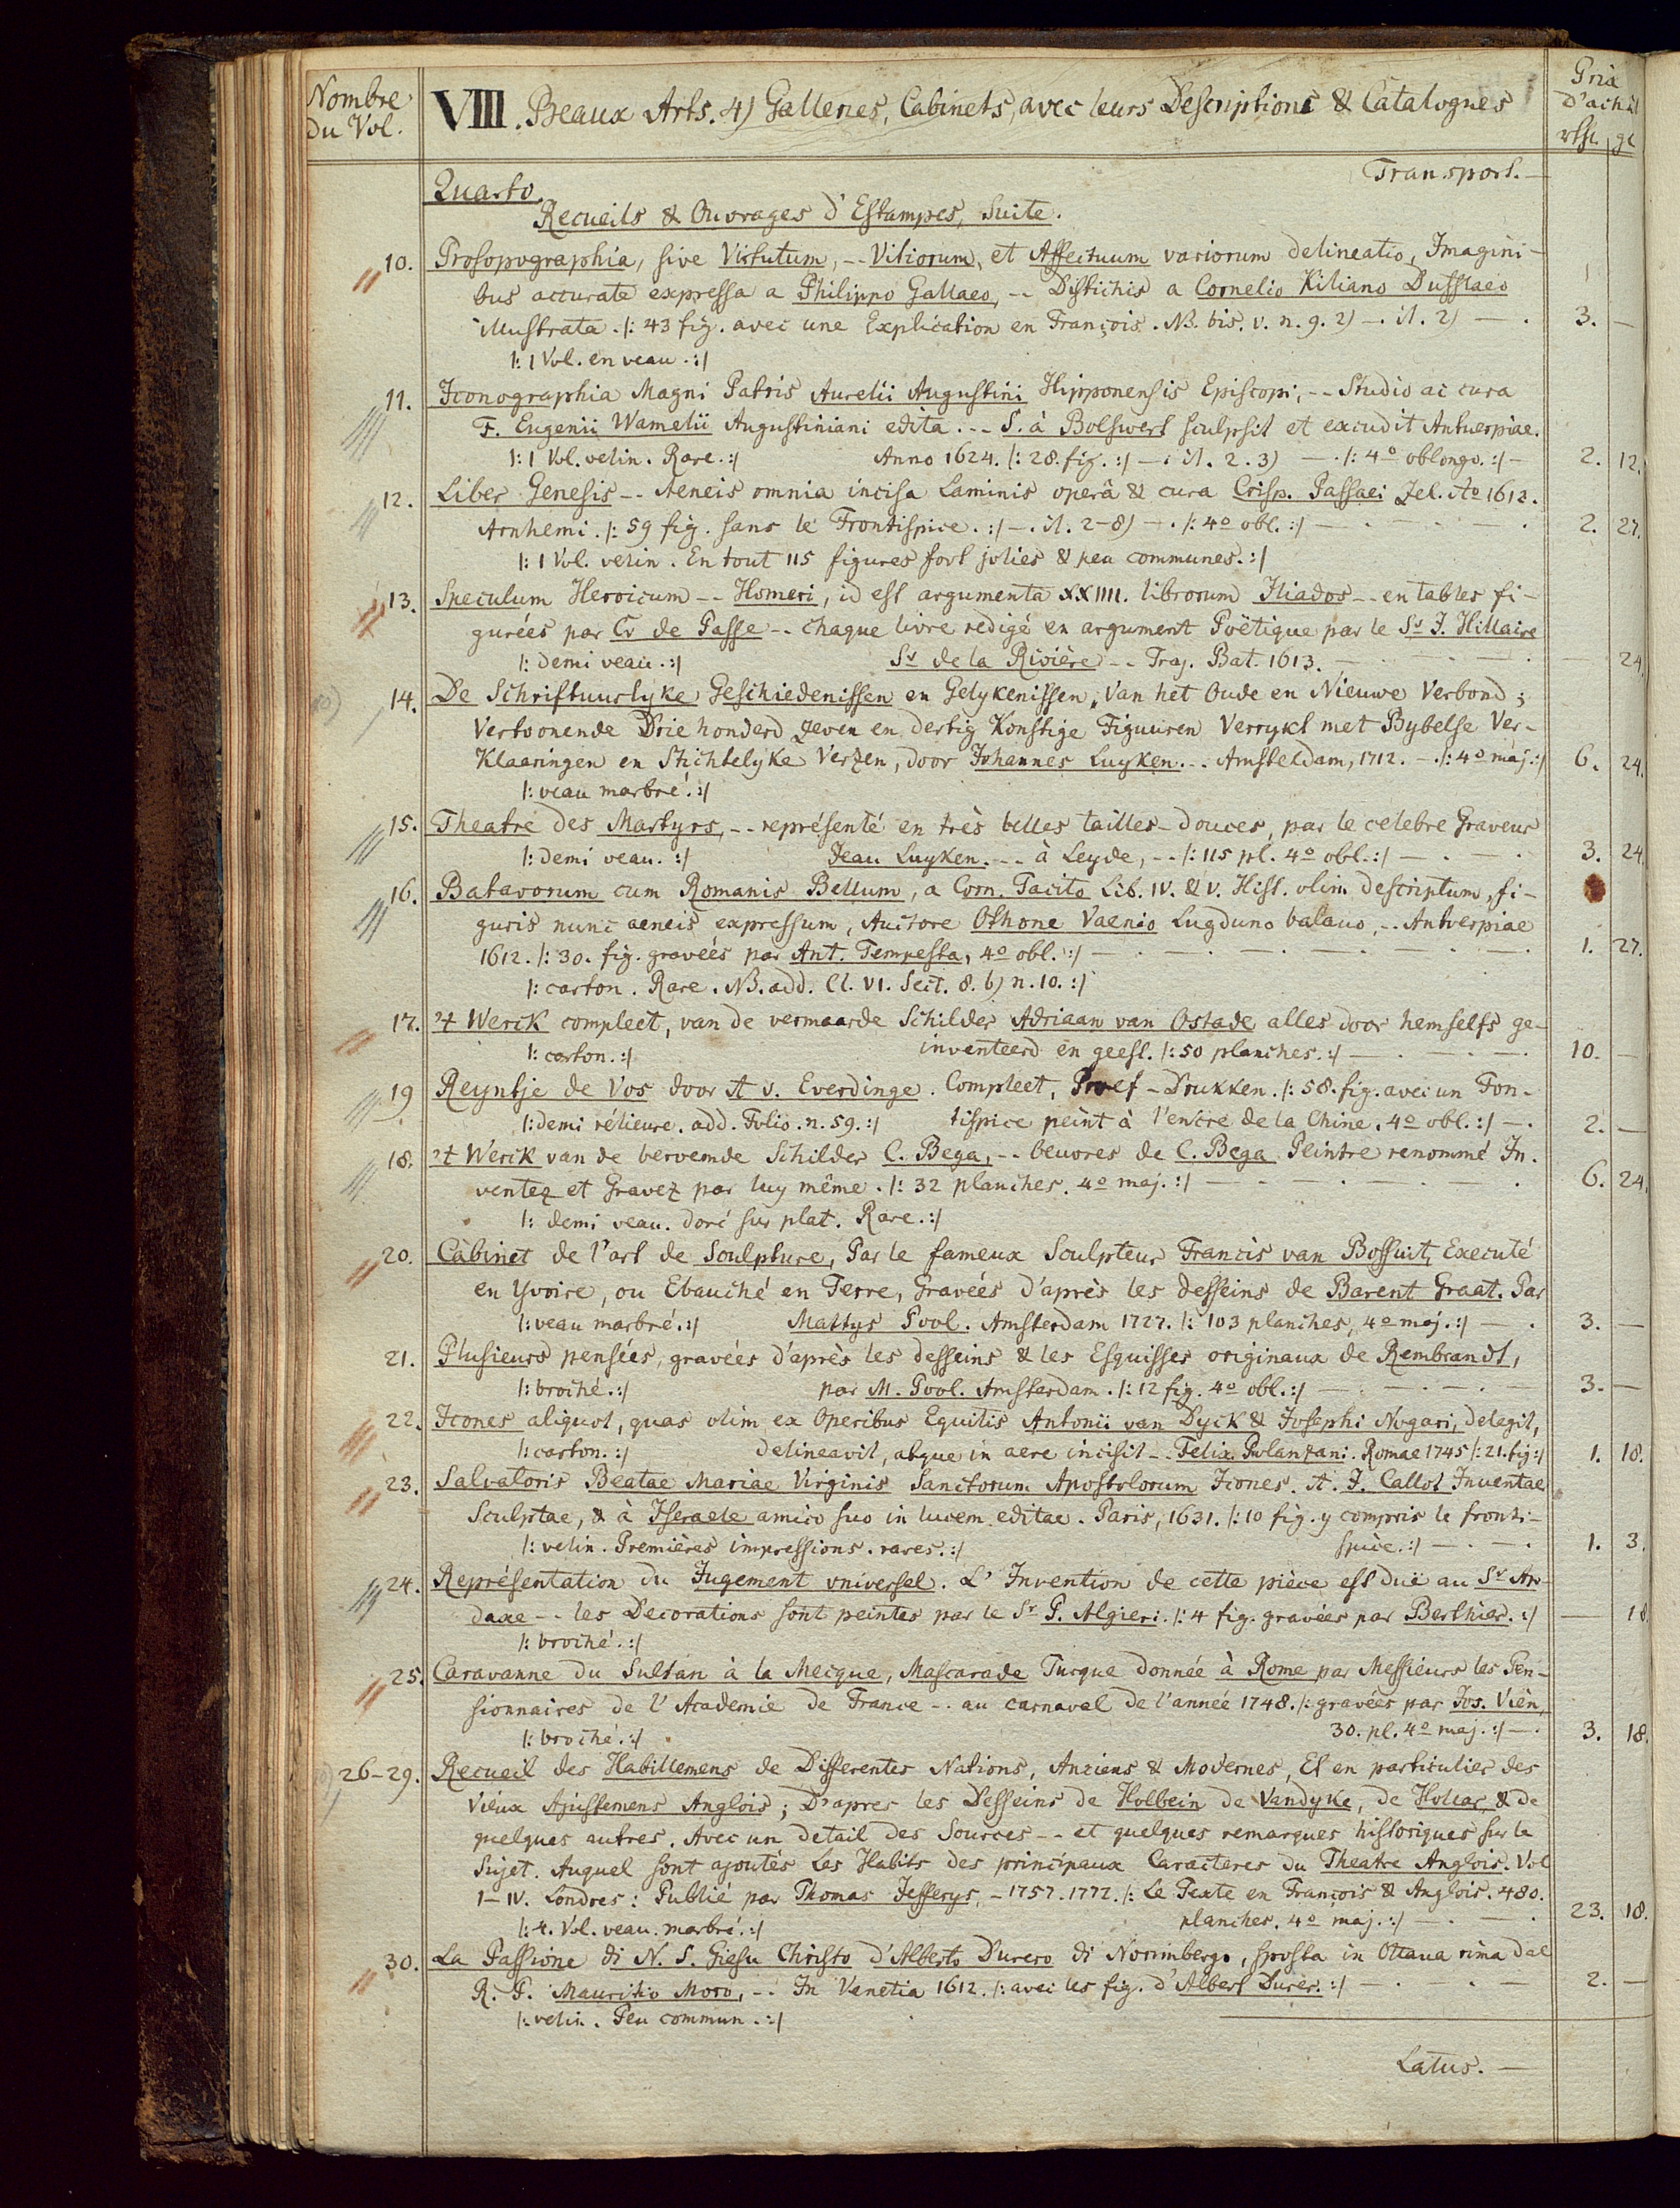 Nombre du Vol.
VIII. Beaux Arts. 4) Galleries, Cabinets, avec leurs Descriptions & Catalogues
Prix d'achât
rthl. gl
Transport. —
Quarto.
Recueils & Ouvrages d'Estampes, Suite.
10. Prosopographia, sive Virtutum, -- Vitiorum, et Affectuum variorum delineatio, Imagini-
bus accurate expressa a Philippo Gallaeo, -- Distichis a Cornelio Kiliano Dufflaeo
illustrata. |: 43 fig. avec une Explication en François. NB. bis. v. n. 9. 2) —. it. 2) — . 3. —
|: 1 Vol. en veau. :|
11. Iconographia Magni Patris Aurelii Augustini Hipponensis Episcopi, -- Studio ac cura
F. Eugenii Wamelii Augustiniani edita. -- S. à Bolswert sculpsit et excudit Antuerpiae.
|: 1 Vol. velin. Rare. :| Anno 1624. |: 28. fig. :| —. it. 2. 3) — . |: 4º oblongo. :| — 2. 12.
12. Liber Genesis -- Aeneis omnia incisa Laminis operâ & cura Crisp. Passaei Zel. Aº 1612.
Arnhemi. |: 59 fig. sans le Frontispice. :| —. it. 2-8) —. |: 4º obl. :| — 2. 27.
|: 1 Vol. velin. En tout 115 figures fort jolies & peu communes. :|
13. Speculum Heroicum -- Homeri, id est argumenta XXIIII. librorum Iliados -- en tables fi-
gurées par Cr de Passe -- chaque livre redigé en argument Poëtique par le Sr. J. Hillaire
|: demi veau. :| Sr de la Rivière -- Traj. Bat. 1613. — — 24.
14. De Schriftuurlyke Geschiedenissen en Gelykenissen, Van het Oude en Nieuwe Verbond;
Vertoonende Drie honderd zeven en dertig Konstige Figuuren Verrykt met Bybelse Ver-
Klaaringen en Stichtelyke Verzen, door Johannes Luyken. -- Amsteldam, 1712. —. |: 4º maj. :| 6. 24.
|: veau marbré. :|
15. Theatre des Martyrs, -- représenté en très belles tailles-douces, par le celebre Graveur
|: demi veau. :| Jean Luyken. -- à Leyde, -- |: 115 pl. 4º obl. :| — 3. 24.
16. Batavorum cum Romanis Bellum, a Corn. Tacito Lib. IV. & V. Hist. olim descriptum, fi-
guris nunc aeneis expressum, Auctore Othone Vaenio Lugduno batavo, -- Antverpiae
1612. |: 30. fig. gravées par Ant. Tempesta, 4º obl. :| — 1. 27.
|: carton. Rare. NB. add. Cl. VI. Sect. 8. b) n. 10. :|
17. 't Werck compleet, van de vermaarde Schilder Adriaan van Ostade alles door hemselfs ge-
|: carton. :| inventeerd en geest. |: 50 planches. :| — 10. —
19 Reyntje de Vos door A v. Everdinge. Compleet, Proef-Drukken. |: 58. fig. avec un Fon-
|: demi rélieure. add. Folio. n. 59. :| tispice peint à l'encre de la Chine. 4º obl. :| —. 2. —
18. 't Werck van de beroemde Schilder C. Bega, -- beuvres de C. Bega Peintre renommé In-
ventez et Gravez par luy même. |: 32 planches. 4º maj. :| — 6. 24.
|: demi veau. doré sur plat. Rare. :|
20. Cabinet de l'art de Sculpture, Par le fameux Sculpteur Francis van Bossuit, Executé
en Yvoire, ou Ebauché en Terre, Gravées d'après les desseins de Barent Graat. Par
|: veau marbré. :| Mattys Pool. Amsterdam 1727. |: 103 planches, 4º maj. :| — . 3. —
21. Plusieurs pensées, gravées d'après les desseins & les Esquisses originaux de Rembrandt,
|: broché. :| par M. Pool. Amsterdam. |: 12 fig. 4º obl. :| — 3. —
22. Icones aliquot, quas olim ex Operibus Equitis Antonii van Dyck & Josephi Nogari, delegit,
|: carton. :| delineavit, atque in aere incisit -- Felix Polanzani. Romae 1745 |: 21. fig :| 1. 18.
23. Salvatoris Beatae Mariae Virginis Sanctorum Apostolorum Icones. A. J. Callot Inventae
Sculptae, & à Israele amico suo in lucem editae. Paris, 1631. |: 10 fig. y compris le fronti-
|: velin. Premières impressions. rares. :| spice. :| — . 1. 3.
24. Représentation du Jugement universel. L'Invention de cette pièce est duë au Sr Ar-
daxe -- les Decorations sont peintes par le Sr P. Algieri. |: 4 fig. gravées par Berthier. :| — 18.
|: broché. :|
25. Caravanne du Sultan à la Mecque, Mascarade Turque donnée à Rome par Messieurs les Pen-
sionnaires de l'Academie de France -- au carnaval de l'année 1748. |: gravées par Jos. Vièn,
|: broché. :| 30. pl. 4º maj. :| — . 3. 18.
26-29. Recueil des Habillemens de Differentes Nations, Anciens & Modernes, Et en particulier des
Vieux Ajustemens Anglois; D'apres les Desseins de Holbein de Vandyke, de Hollar & de
quelques autres. Avec un detail des Sources -- et quelques remarques historiques sur le
Sujet. Auquel sont ajoutés Les Habits des principaux Caracteres du Theatre Anglois. Vol
I–IV. Londres: Publié par Thomas Jefferys, - 1757. 1772. |: Le Texte en François & Anglois. 480.
|: 4. Vol. veau. marbré. :| planches. 4º maj. :| — . 23. 18.
30. La Passione di N. S. Giesu Christo d'Alberto Durero di Norimbergo, sposta in Ottaua rima dal
R. P. Mauritio Moro, -- In Venetia 1612. |: avec les fig. d'Albert Durer. :| — 2. —
|: velin. Peu commun. :|
Latus. —